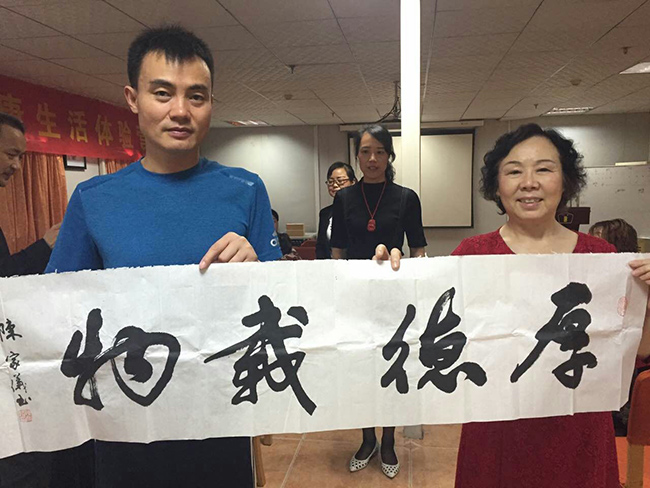 生活体验
厚德載物
陳家